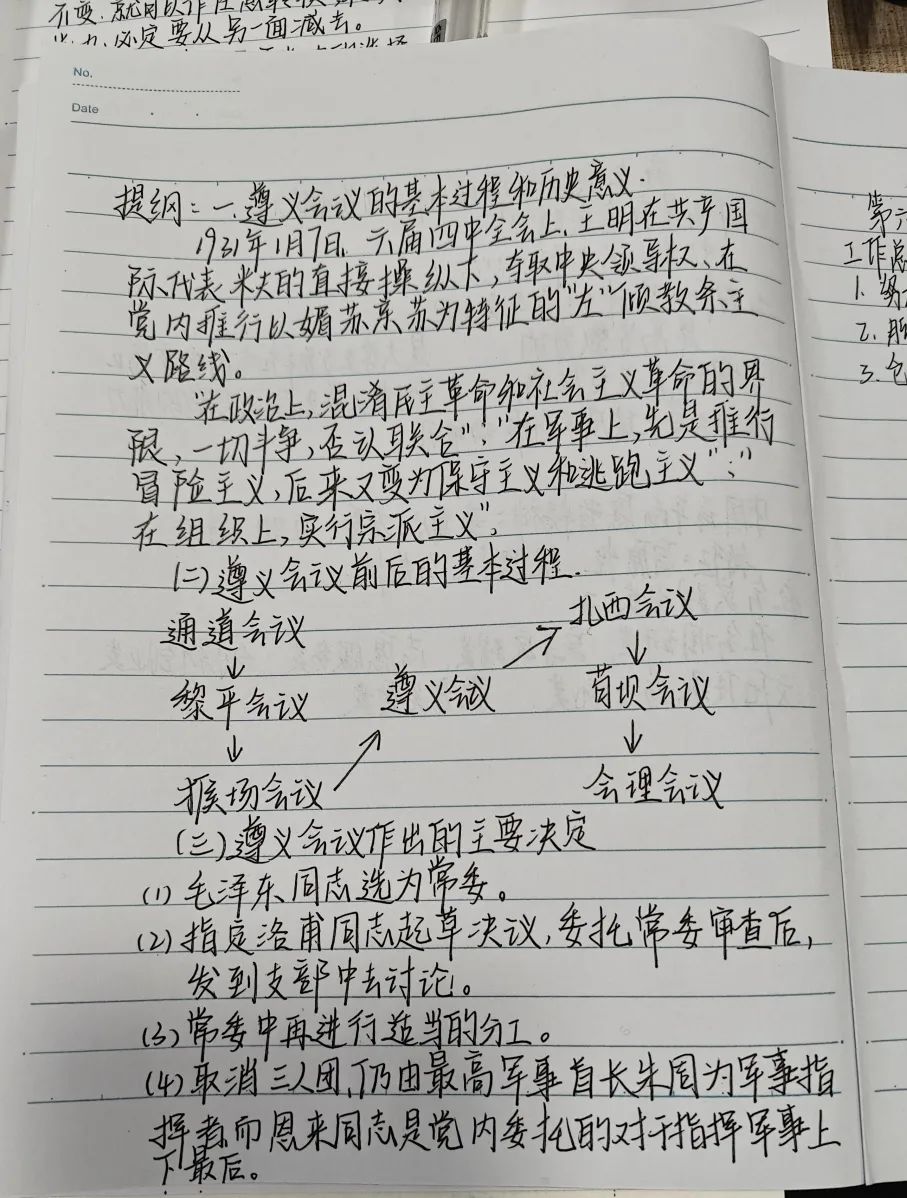 不变，就可以作任意
必定要从另一面减去。
No.
Date
提纲：一.遵义会议的基本过程和历史意义.
1931年1月7日，六届四中全会上，王明在共产国
际代表米夫的直接操纵下，夺取中央领导权、在
党内推行以媚苏亲苏为特征的"左"倾教条主
义路线。
"在政治上，混淆民主革命和社会主义革命的界
限，一切斗争，否认联合"；"在军事上，先是推行
冒险主义，后来又变为保守主义和逃跑主义"；"
在组织上，实行宗派主义"；
(二)遵义会议前后的基本过程.
扎西会议
通道会议
↓ ↗ ↓
黎平会议 遵义会议 苟坝会议
↓ ↗ ↓
猴场会议 会理会议
(三)遵义会议作出的主要决定
(1)毛泽东同志选为常委。
(2)指定洛甫同志起草决议，委托常委审查后，
发到支部中去讨论。
(3)常委中再进行适当的分工。
(4)取消三人团，仍由最高军事首长朱周为军事指
挥者，而恩来同志是党内委托的对于指挥军事上
下最后。
第六
工作总
1.
2.
3.